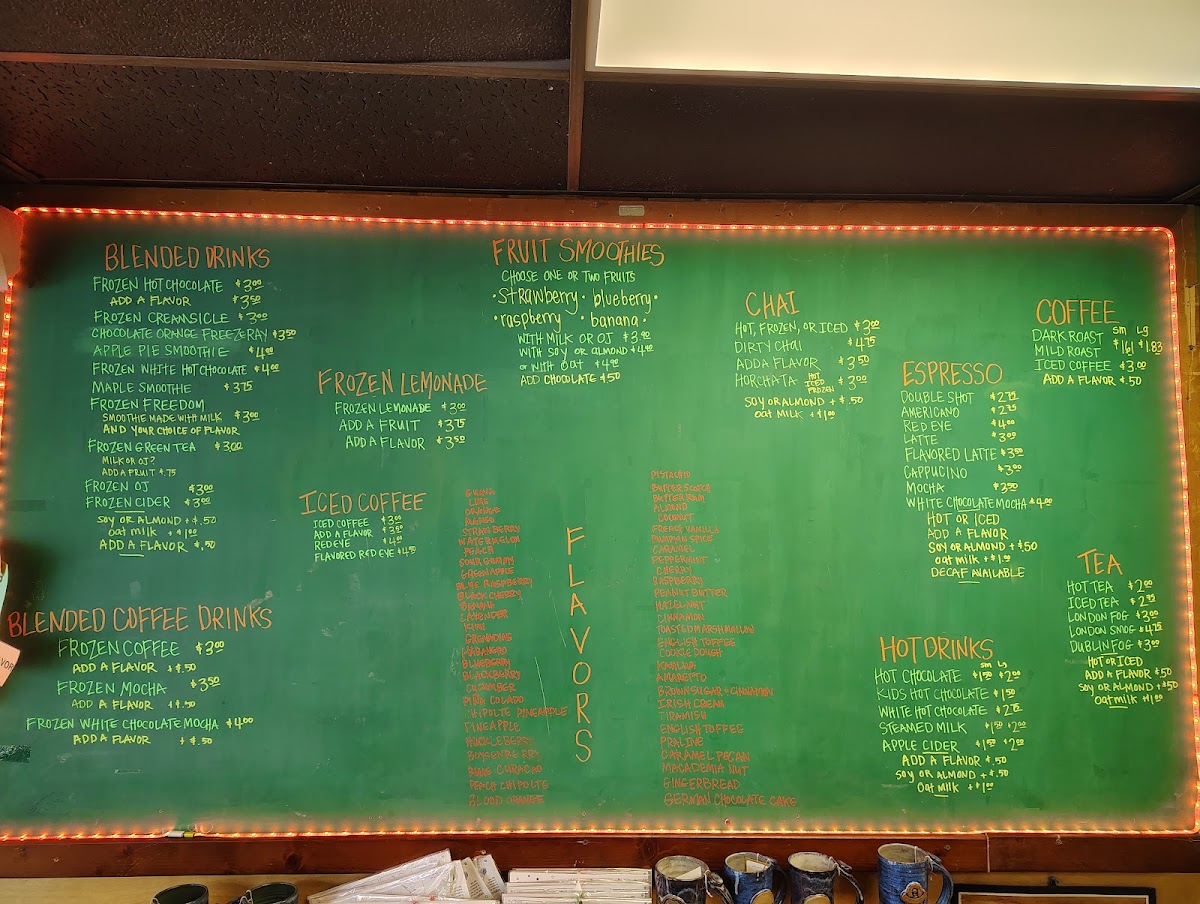 BLENDED DRINKS
FROZEN HOT CHOCOLATE $3.00
ADD A FLAVOR $3.50
FROZEN CREAMSICLE $3.00
CHOCOLATE ORANGE FREEZERAY $3.50
APPLE PIE SMOOTHIE $4.00
FROZEN WHITE HOT CHOCOLATE $4.00
MAPLE SMOOTHIE $3.75
FROZEN FREEDOM
SMOOTHIE MADE WITH MILK $3.00
AND YOUR CHOICE OF FLAVOR
FROZEN GREEN TEA $3.00
MILK OR OJ?
ADD A FRUIT $.75
FROZEN OJ $3.00
FROZEN CIDER $3.00
SOY OR ALMOND + $.50
oat milk + $1.00
ADD A FLAVOR + $.50
BLENDED COFFEE DRINKS
FROZEN COFFEE $3.00
ADD A FLAVOR + $.50
FROZEN MOCHA $3.50
ADD A FLAVOR + $.50
FROZEN WHITE CHOCOLATE MOCHA $4.00
ADD A FLAVOR + $.50
FROZEN LEMONADE
FROZEN LEMONADE $3.00
ADD A FRUIT $3.75
ADD A FLAVOR $3.50
ICED COFFEE
ICED COFFEE $3.00
ADD A FLAVOR $3.50
RED EYE $4.00
FLAVORED RED EYE $4.50
FRUIT SMOOTHIES
CHOOSE ONE OR TWO FRUITS
• strawberry • blueberry •
• raspberry • banana •
WITH MILK OR OJ $3.90
WITH SOY OR ALMOND $4.40
or WITH oat $4.90
ADD CHOCOLATE $.50
GUAVA
LIME
ORANGE
MANGO
STRAWBERRY
WATERMELON
PEACH
SOUR GRAPE
GREEN APPLE
BLUE RASPBERRY
BLACK CHERRY
BANANA
LAVENDER
KIWI
GRENADINE
BLUEBERRY
BLACKBERRY
CUCUMBER
PIÑA COLADO
CHIPOLTE PINEAPPLE
PINEAPPLE
HUCKLEBERRY
BOYSENBERRY
BLUE CURACAO
PEACH CHIPOLTE
BLOOD ORANGE
FLAVORS
PISTACHIO
BUTTERSCOTCH
BUTTER RUM
ALMOND
COCONUT
FRENCH VANILLA
PUMPKIN SPICE
CARAMEL
PEPPERMINT
CHERRY
RASPBERRY
PEANUT BUTTER
HAZELNUT
CINNAMON
TOASTED MARSHMALLOW
ENGLISH TOFFEE
COOKIE DOUGH
KAHLUA
AMARETTO
BROWN SUGAR + CINNAMON
IRISH CREAM
TIRAMISU
ENGLISH TOFFEE
PRALINE
CARAMEL PECAN
MACADEMIA NUT
GINGERBREAD
GERMAN CHOCOLATE CAKE
CHAI
HOT, FROZEN, OR ICED $3.00
DIRTY CHAI $4.75
ADD A FLAVOR $3.50
HORCHATA HOT ICED FROZEN $3.00
SOY OR ALMOND + $.50
oat MILK + $1.00
ESPRESSO
DOUBLE SHOT $2.75
AMERICANO $2.75
RED EYE $4.00
LATTE $3.00
FLAVORED LATTE $3.50
CAPPUCINO $3.00
MOCHA $3.50
WHITE CHOCOLATE MOCHA $4.00
HOT OR ICED
ADD A FLAVOR
SOY OR ALMOND + $.50
oat milk + $1.00
DECAF AVAILABLE
HOT DRINKS
sm Lg
HOT CHOCOLATE $1.50 $2.00
KIDS HOT CHOCOLATE $1.50
WHITE HOT CHOCOLATE $2.75
STEAMED MILK $1.50 $2.00
APPLE CIDER $1.50 $2.00
ADD A FLAVOR $.50
SOY OR ALMOND + $.50
Oat MILK + $1.00
COFFEE
sm Lg
DARK ROAST
MILD ROAST $1.61 $1.83
ICED COFFEE $3.00
ADD A FLAVOR $.50
TEA
HOT TEA $2.00
ICED TEA $2.75
LONDON FOG $3.00
LONDON SMOG $4.75
DUBLIN FOG $3.00
HOT OR ICED
ADD A FLAVOR $.50
SOY OR ALMOND + $.50
Oat milk + $1.00